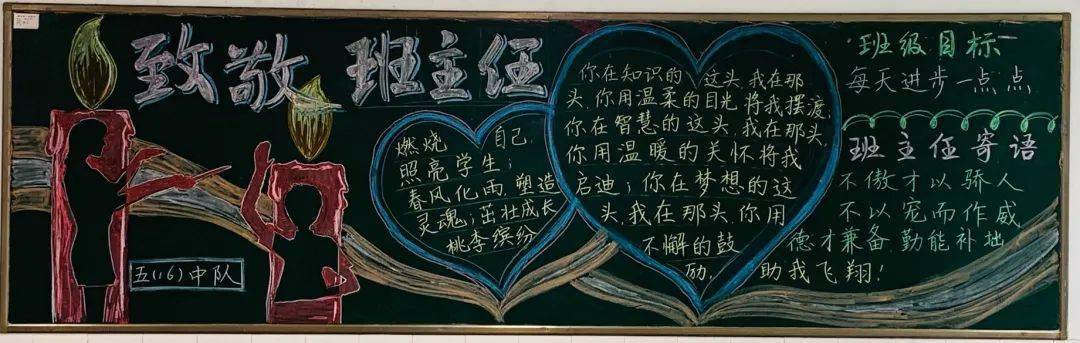 致敬 班主任
五(16)中队
燃烧 自己,
照亮学生;
春风化雨,塑造
灵魂;茁壮成长
桃李缤纷
你在知识的 这头,我在那
头,你用温柔的目光 将我摆渡,
你在智慧的这头,我在那头,
你用温暖的关怀将我
启迪;你在梦想的这
头,我在那头,你用
不懈的鼓
励,
班级目标
每天进步一点点
班主任寄语
不傲才以骄人
不以宠而作威
德才兼备,勤能补拙
助我飞翔!